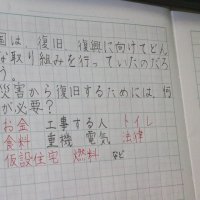 国は、復旧、復興に向けてどん
な取り組みを行っていたのだろ
う。
災害から復旧するためには、何
が必要?
お金 工事する人 トイレ
食料 重機 電気 法律
仮設住宅 燃料 など